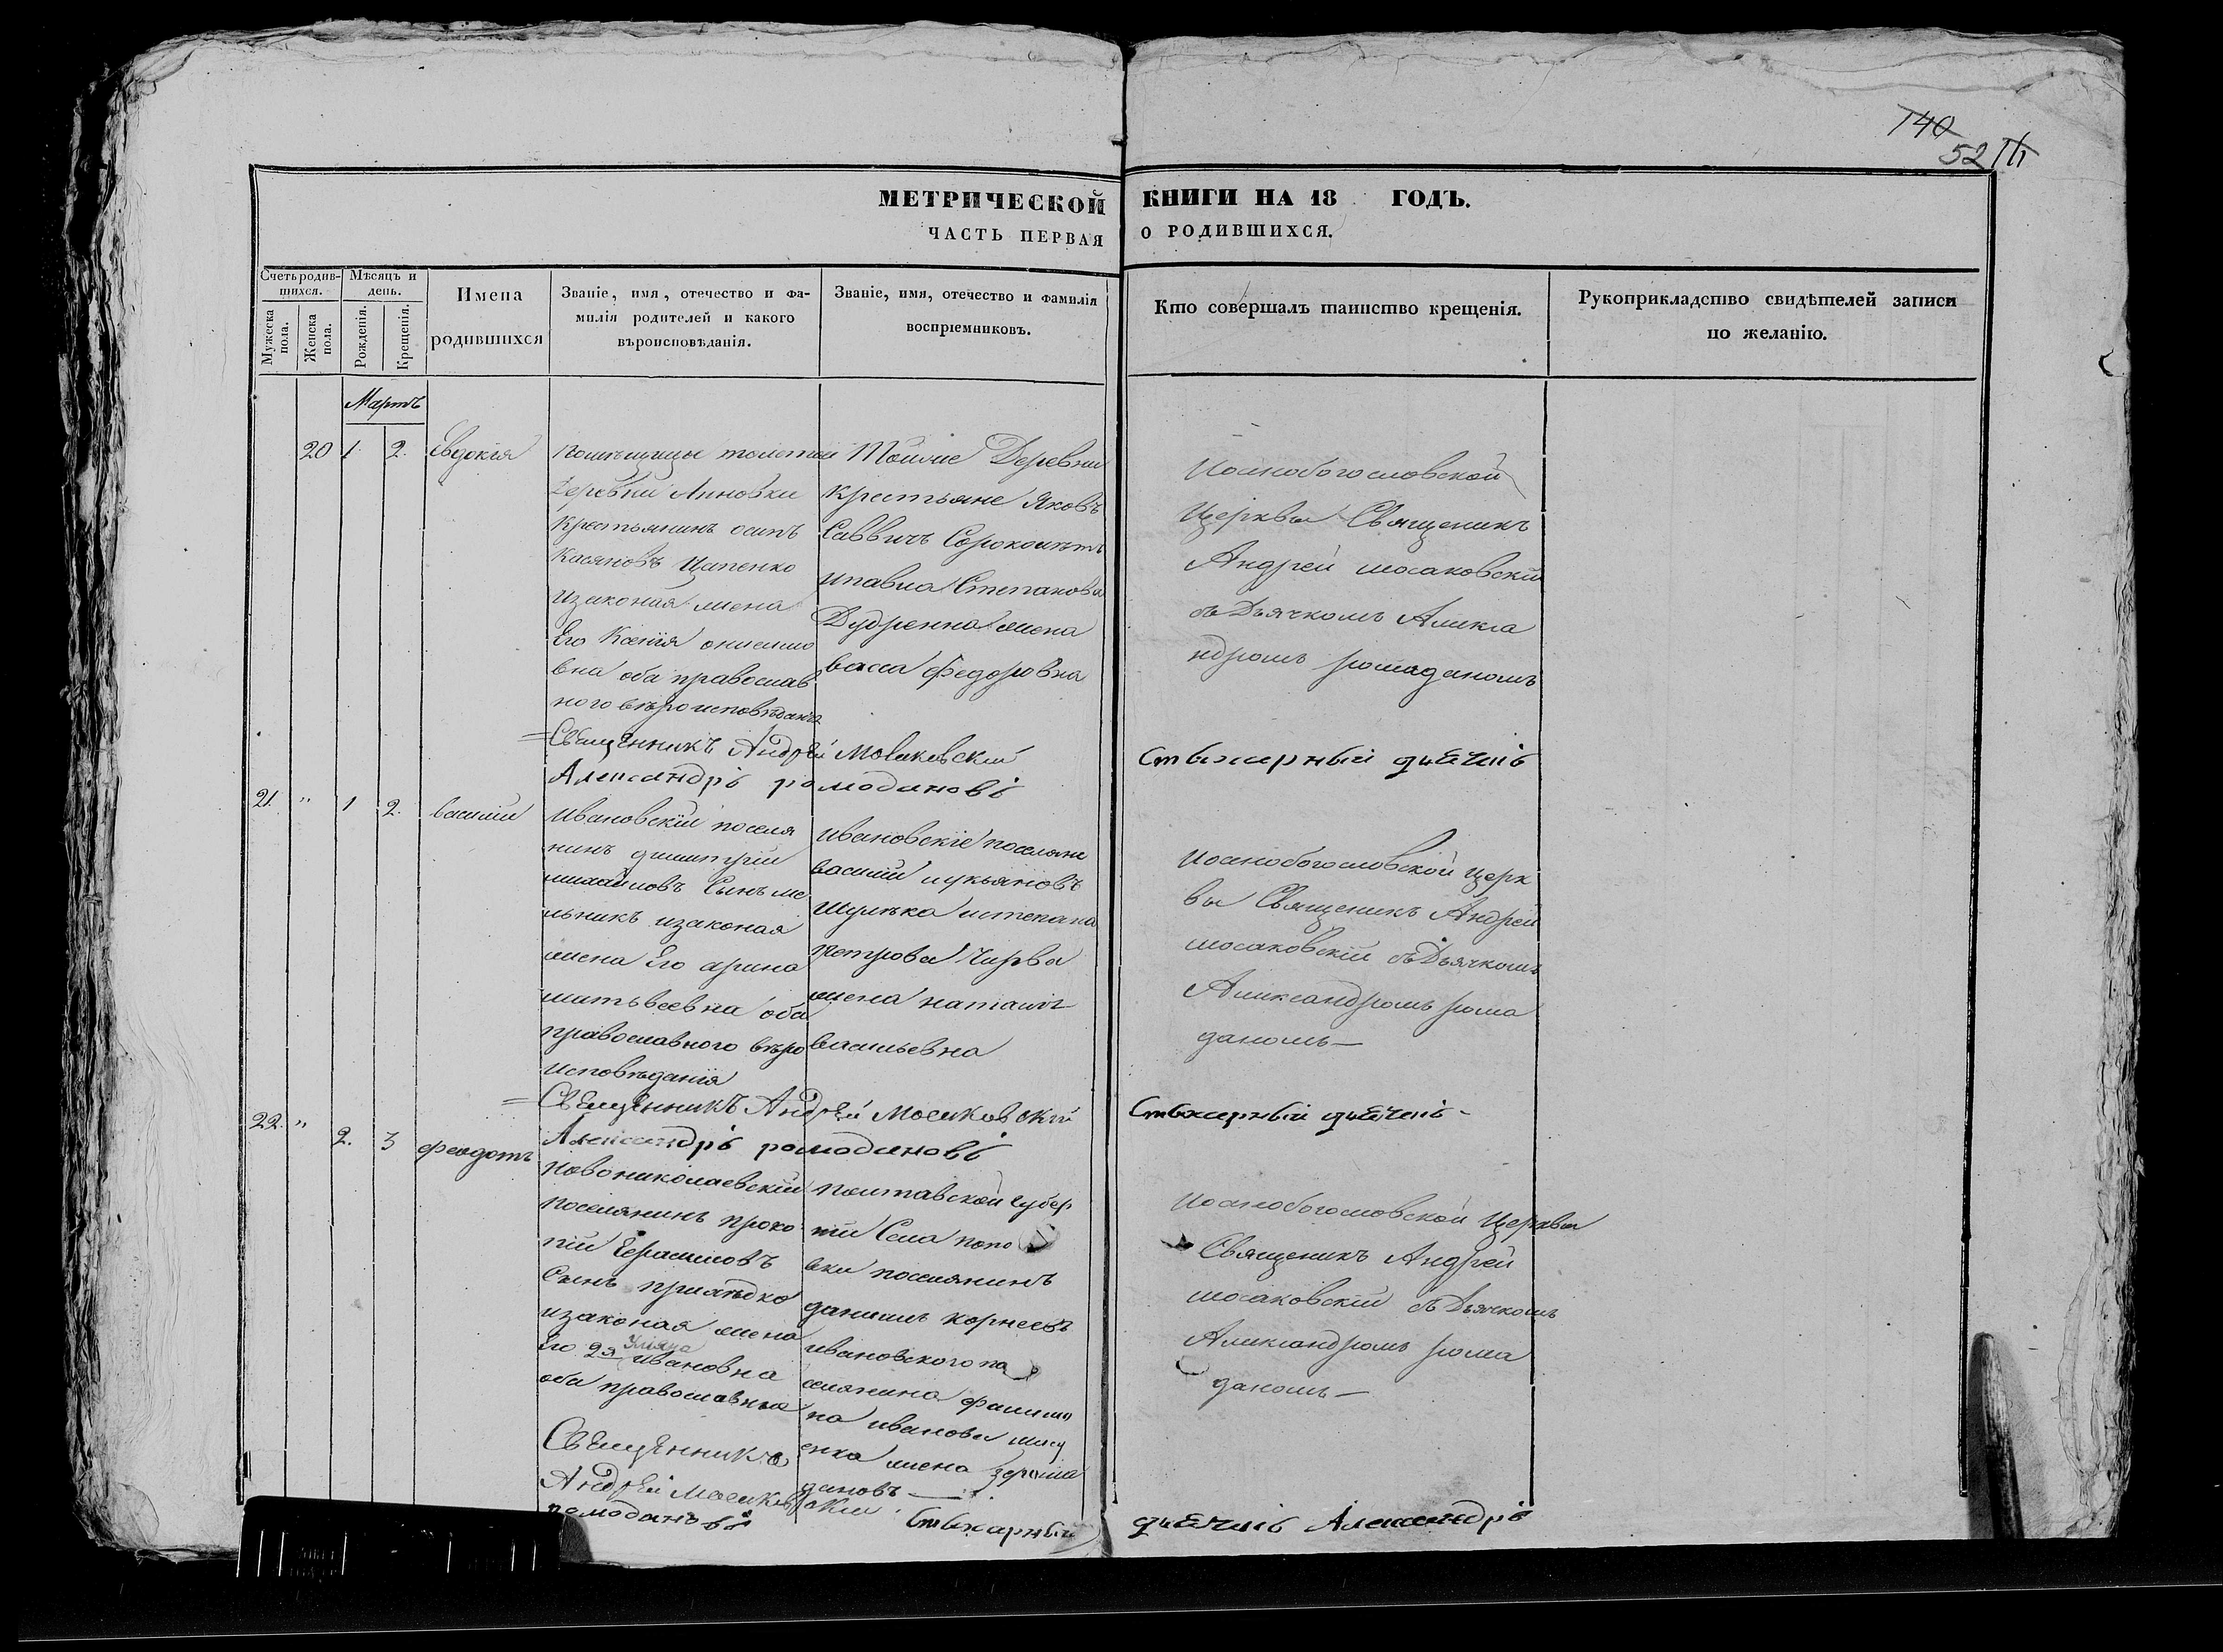 140
52
МЕТРИЧЕСКОЙ КНИГИ НА 18 ГОДЪ.
ЧАСТЬ ПЕРВАЯ О РОДИВШИХСЯ.
Счетъ родив-
шихся.
Мужеска
пола.
Женска
пола.
Мѣсяцъ и
день.
Рожденія.
Крещенія.
Имена
родившихся
Званіе, имя, отечество и фа-
милія родителей и какого
вѣроисповѣданія.
Званіе, имя, отечество и фамилія
воспріемниковъ.
Кто совершалъ таинство крещенія.
Рукоприкладство свидѣтелей записи
по желанію.
Мартъ
20 1 2. Евдокія
помѣщицы толстой
Деревни Анновки
Крестьянинъ осипъ
Касяновъ Цапенко
изаконая жена
Его Ксенія
вна оба православ
ного вѣроисповѣданія
Тойже Деревни
крестьяне Яковъ
Саввичъ
ипавла Степанова
Дудренка жена
васса федоровна
Иоанобогословской
Церквы Священикъ
Андрей мосаковскій
съ Дьячкомъ Алекса
ндромъ ромаданомъ
Священникъ Андрей Мосаковскій
Александръ ромодановъ
Стыхарный дьячекъ
21. " 1 2. василій
Ивановскій поселя
нинъ димитрій
михайловъ Сынъ ме
льникъ изаконая
жена Его арина
матьвеевна оба
православного вѣро
исповѣданія
ивановскіе поселяне
василій лукьяновъ
Шулѣка истепана
петрова Чирва
жена наталія
васильевна
Иоанобогословской церк
вы Священикъ Андрей
мосаковскій съ Дьячкомъ
Александромъ рома
даномъ—
Священникъ Андрей Мосаковскій
Александръ ромодановъ
Стыхарный дьячекъ-
22. " 2. 3 феодотъ
Новониколаевскій
поселянинъ проко
пій Герасимовъ
Сынъ
изаконая жена
Его 2я Уліяна ивановна
оба православныя
полтавской губер
ніи Села попо
вки поселянинъ
данилъ корнеевъ
ивановского по
селянина филип
па иванова
енка жена
Иоанобогословской Церквы
Священикъ Андрей
мосаковскій съ Дьячкомъ
Александромъ рома
даномъ—
Священникъ
Андрей Мосаковскій
Стыхарный дьячекъ Александръ
ромодановъ